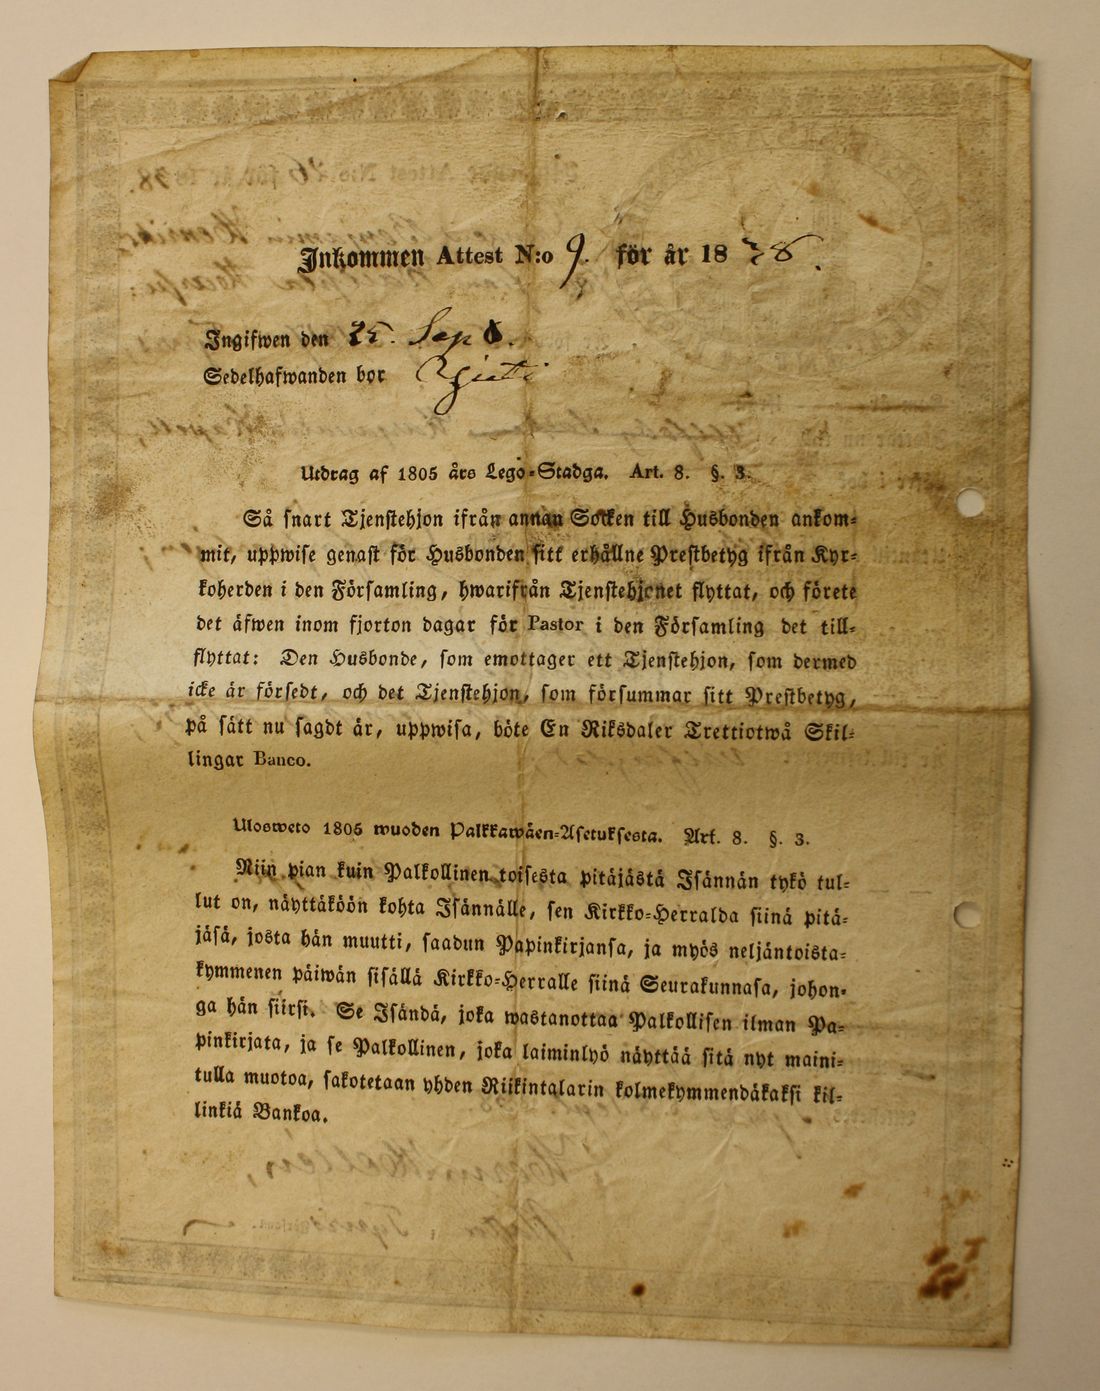 Inkommen Attest N:o 9. för år 1838.
Ingifwen den 25. Sep
Sedelhafwanden bor
Utdrag af 1805 års Lego-Stadga. Art. 8. §. 3.
Så snart Tjenstehjon ifrån annan Socken till Husbonden ankom-
mit, uppwise genast för Husbonden sitt erhållne Prestbetyg ifrån Kyr-
koherden i den Församling, hwarifrån Tjenstehjonet flyttat, och förete
det äfwen inom fjorton dagar för Pastor i den Församling det till-
flyttat: Den Husbonde, som emottager ett Tjenstehjon, som dermed
icke är försedt, och det Tjenstehjon, som försummar sitt Prestbetyg,
på sätt nu sagdt är, uppwisa, böte En Riksdaler Trettiotwå Skil-
lingar Banco.
Ulosweto 1805 wuoden Palkkawäen-Asetuksesta. Art. 8. §. 3.
Niin pian kuin Palkollinen toisesta pitäjästä Isännän tykö tul-
lut on, näyttäköön kohta Isännälle, sen Kirkko-Herralda siinä pitä-
jäsä, josta hän muutti, saadun Papinkirjansa, ja myös neljäntoista-
kymmenen päiwän sisällä Kirkko-Herralle siinä Seurakunnasa, johon-
ga hän siirsi. Se Isändä, joka wastanottaa Palkollisen ilman Pa-
pinkirjata, ja se Palkollinen, joka laiminlyö näyttää sitä nyt maini-
tulla muotoa, sakotetaan yhden Riikintalarin kolmekymmendäkaksi kil-
linkiä Bankoa.